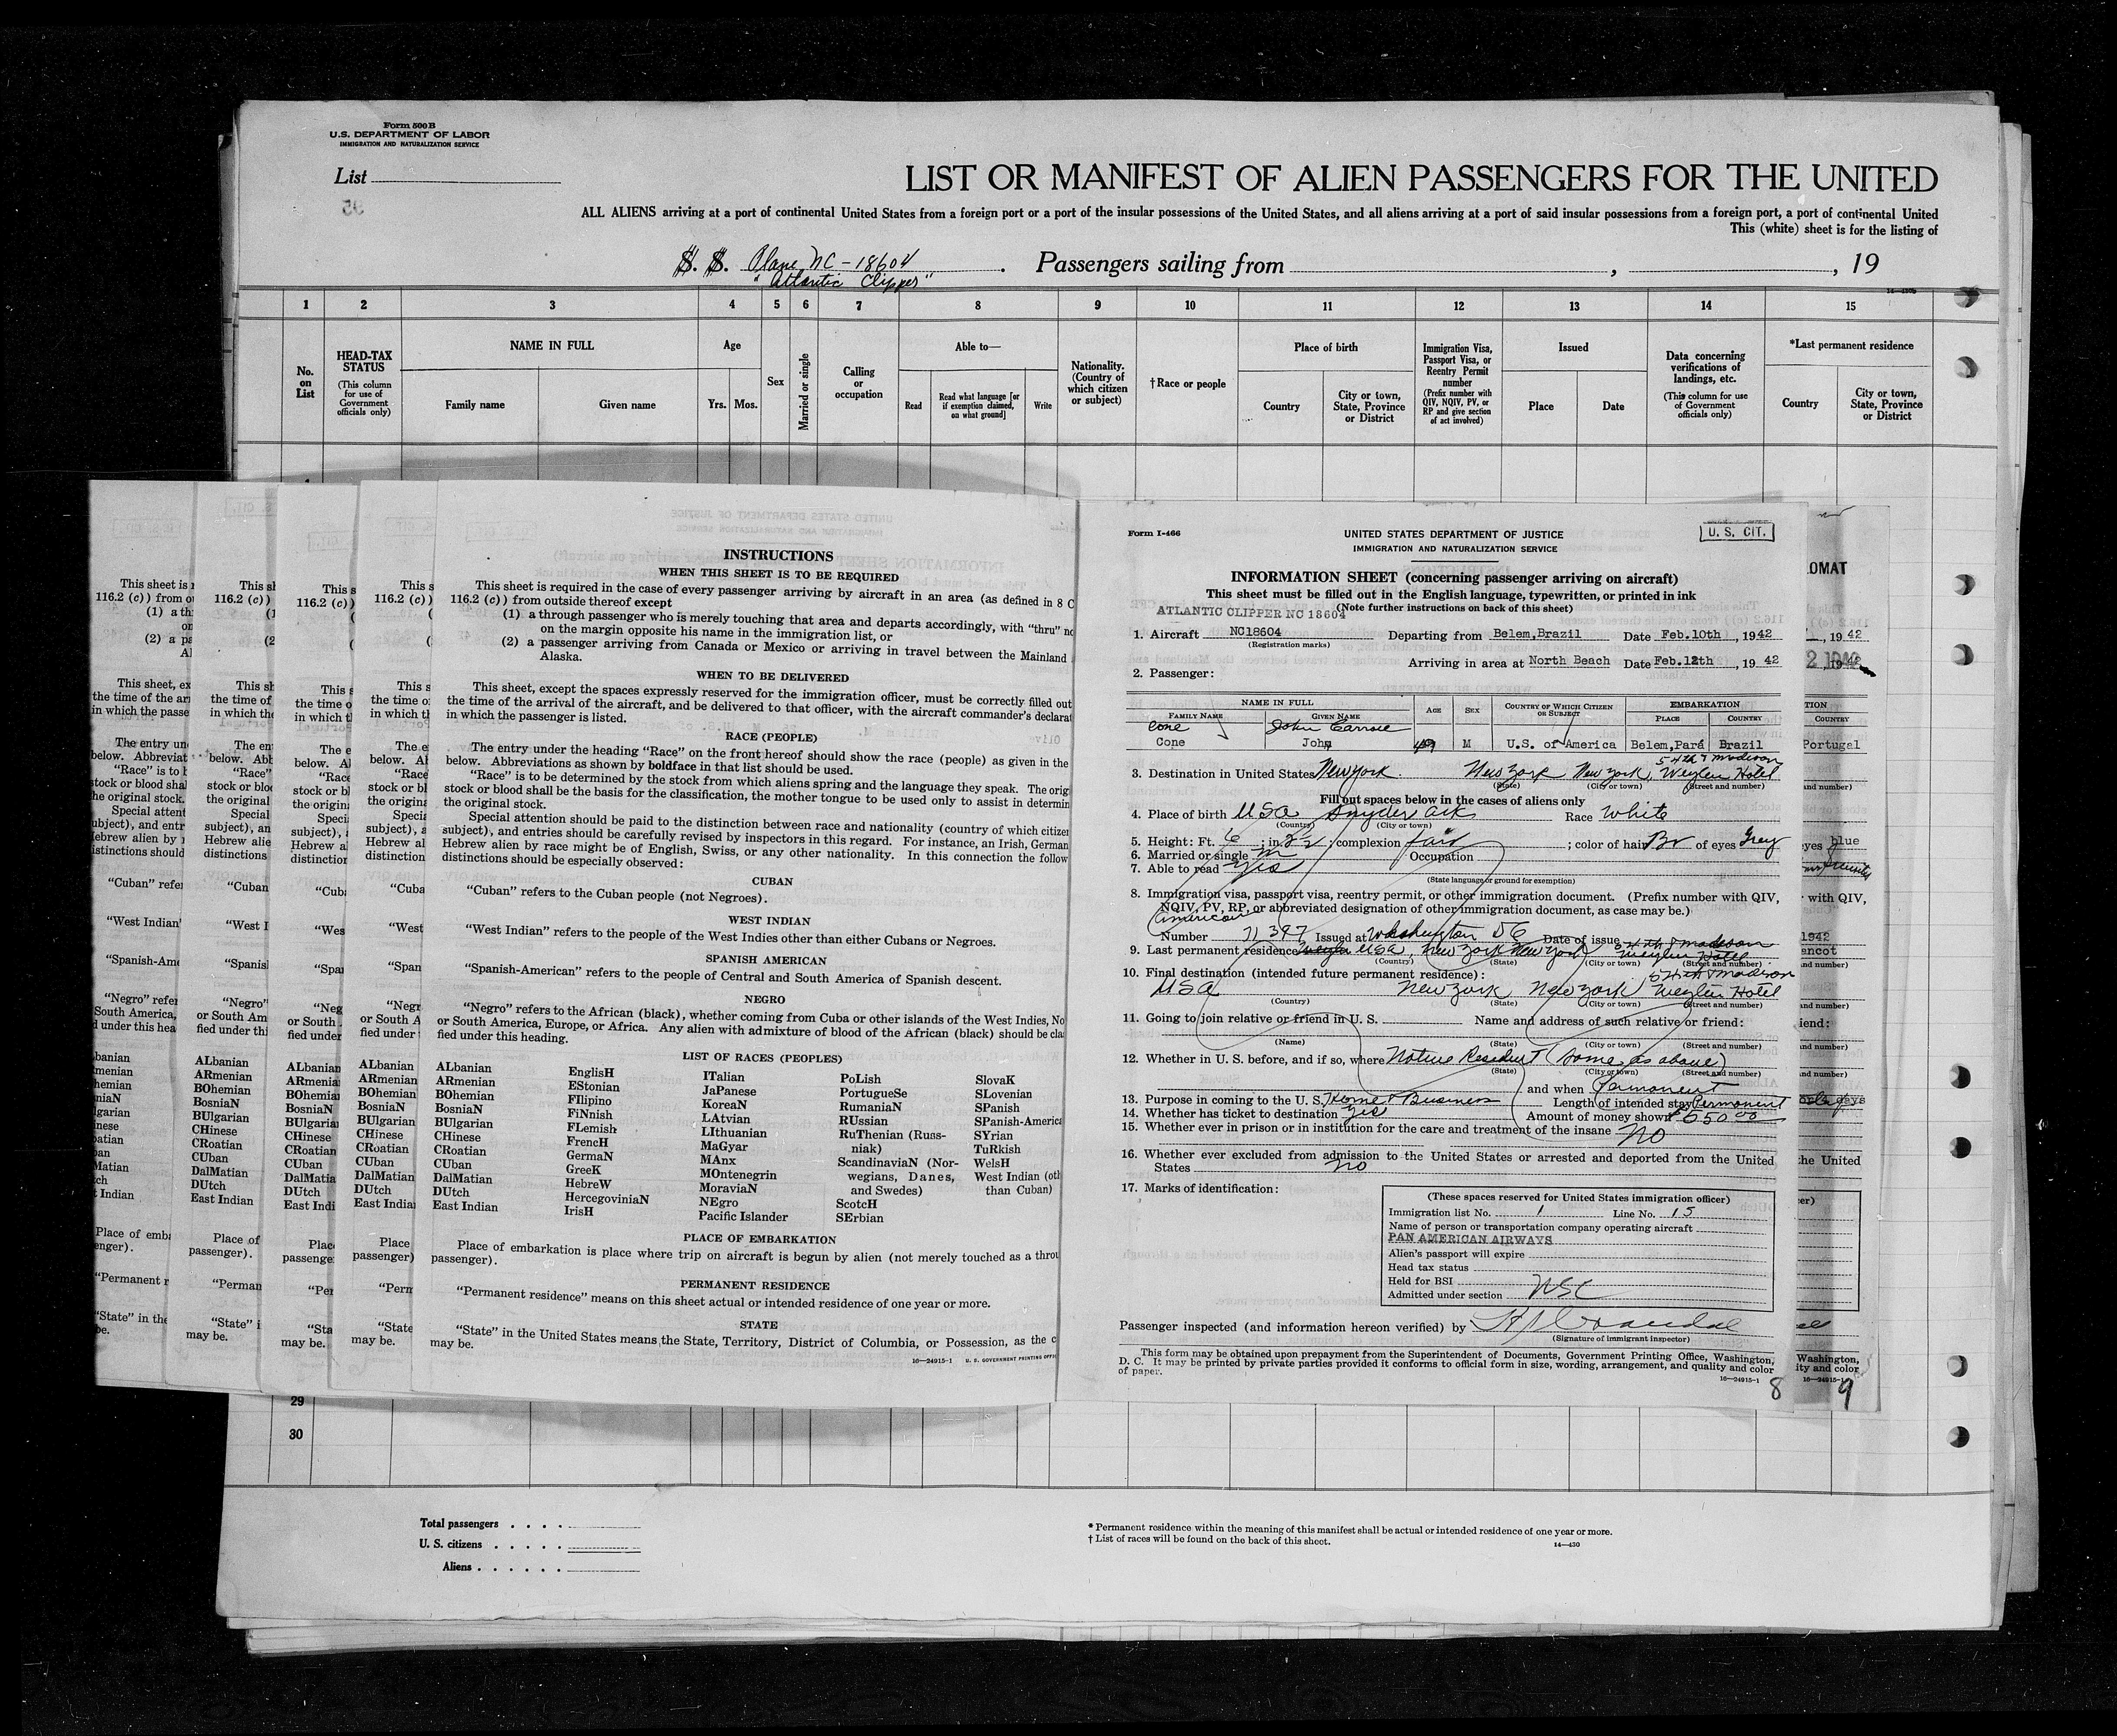 Form 500 B
U.S. DEPARTMENT OF LABOR
IMMIGRATION AND NATURALIZATION SERVICE
List
LIST OR MANIFEST OF ALIEN PASSENGERS FOR THE UNITED
ALL ALIENS arriving at a port of continental United States from a foreign port or a port of the insular possessions of the United States, and all aliens arriving at a port of said insular possessions from a foreign port, a port of continental United
This (white) sheet is for the listing of
S. S. Plane NC-18604 . Passengers sailing from , , 19
"Atlantic Clipper"
1 2 3 4 5 6 7 8 9 10 11 12 13 14 15
No. on List
HEAD-TAX STATUS
(This column for use of Government officials only)
NAME IN FULL
Family name Given name
Age
Yrs. Mos.
Sex
Married or single
Calling or occupation
Able to—
Read
Read what language [or if exemption claimed, on what ground]
Write
Nationality. (Country of which citizen or subject)
†Race or people
Place of birth
Country
City or town, State, Province or District
Immigration Visa, Passport Visa, or Reentry Permit number
(Prefix number with QIV, NQIV, PV, or RP and give section of act involved)
Issued
Place Date
Data concerning verifications of landings, etc.
(This column for use of Government officials only)
*Last permanent residence
Country
City or town, State, Province or District
INSTRUCTIONS
WHEN THIS SHEET IS TO BE REQUIRED
This sheet is required in the case of every passenger arriving by aircraft in an area (as defined in 8 C
116.2 (c)) from outside thereof except
(1) a through passenger who is merely touching that area and departs accordingly, with "thru" no
on the margin opposite his name in the immigration list, or
(2) a passenger arriving from Canada or Mexico or arriving in travel between the Mainland
Alaska.
WHEN TO BE DELIVERED
This sheet, except the spaces expressly reserved for the immigration officer, must be correctly filled out
the time of the arrival of the aircraft, and be delivered to that officer, with the aircraft commander's declarat
in which the passenger is listed.
RACE (PEOPLE)
The entry under the heading "Race" on the front hereof should show the race (people) as given in the
below. Abbreviations as shown by boldface in that list should be used.
"Race" is to be determined by the stock from which aliens spring and the language they speak. The orig
stock or blood shall be the basis for the classification, the mother tongue to be used only to assist in determin
the original stock.
Special attention should be paid to the distinction between race and nationality (country of which citizen
subject), and entries should be carefully revised by inspectors in this regard. For instance, an Irish, German
Hebrew alien by race might be of English, Swiss, or any other nationality. In this connection the follow
distinctions should be especially observed:
CUBAN
"Cuban" refers to the Cuban people (not Negroes).
WEST INDIAN
"West Indian" refers to the people of the West Indies other than either Cubans or Negroes.
SPANISH AMERICAN
"Spanish-American" refers to the people of Central and South America of Spanish descent.
NEGRO
"Negro" refers to the African (black), whether coming from Cuba or other islands of the West Indies, No
or South America, Europe, or Africa. Any alien with admixture of blood of the African (black) should be cla
fied under this heading.
LIST OF RACES (PEOPLES)
ALbanian
ARmenian
BOhemian
BosniaN
BUlgarian
CHinese
CRoatian
CUban
DalMatian
DUtch
East Indian
EnglisH
EStonian
FIlipino
FiNnish
FLemish
FrencH
GermaN
GreeK
HebreW
HercegoviniaN
IrisH
ITalian
JaPanese
KoreaN
LAtvian
LIthuanian
MaGyar
MAnx
MOntenegrin
MoraviaN
NEgro
Pacific Islander
PoLish
PortugueSe
RumaniaN
RUssian
RuThenian (Russ-
niak)
ScandinaviaN (Nor-
wegians, Danes,
and Swedes)
ScotcH
SErbian
SlovaK
SLovenian
SPanish
SPanish-America
SYrian
TuRkish
WelsH
West Indian (oth
than Cuban)
PLACE OF EMBARKATION
Place of embarkation is place where trip on aircraft is begun by alien (not merely touched as a throu
passenger).
PERMANENT RESIDENCE
"Permanent residence" means on this sheet actual or intended residence of one year or more.
STATE
"State" in the United States means the State, Territory, District of Columbia, or Possession, as the c
may be.
16—24915-1 U. S. GOVERNMENT PRINTING OFFIC
Form I-466
UNITED STATES DEPARTMENT OF JUSTICE
IMMIGRATION AND NATURALIZATION SERVICE
U. S. CIT.
INFORMATION SHEET (concerning passenger arriving on aircraft)
This sheet must be filled out in the English language, typewritten, or printed in ink
(Note further instructions on back of this sheet)
ATLANTIC CLIPPER NC 18604
1. Aircraft NC18604 Departing from Belem,Brazil Date Feb.10th , 1942
(Registration marks)
Arriving in area at North Beach Date Feb.12th , 19 42
2. Passenger:
NAME IN FULL
FAMILY NAME GIVEN NAME
AGE SEX COUNTRY OF WHICH CITIZEN OR SUBJECT
EMBARKATION
PLACE COUNTRY
Cone John Carroll
Cone John 49 M U.S. of America Belem,Pará Brazil
54th & Madison
3. Destination in United States New York. New York New York, Weylin Hotel
(State) (City or town) (Street and number)
Fill out spaces below in the cases of aliens only
4. Place of birth USA Snyder Ark Race White
(Country) (City or town)
5. Height: Ft. 6 ; in 2½ ; complexion fair ; color of hair Br of eyes Grey
6. Married or single m Occupation
7. Able to read Yes
(State language or ground for exemption)
8. Immigration visa, passport visa, reentry permit, or other immigration document. (Prefix number with QIV,
NQIV, PV, RP, or abbreviated designation of other immigration document, as case may be.)
American
Number 71397 Issued at Washington DC Date of issue
54th & Madison
9. Last permanent residence USA, New York New York Weylin Hotel
(Country) (State) (City or town) (Street and number)
10. Final destination (intended future permanent residence): 54th & Madison
USA New York New York Weylin Hotel
(Country) (State) (City or town) (Street and number)
11. Going to join relative or friend in U. S. Name and address of such relative or friend:
(Name) (State) (City or town) (Street and number)
12. Whether in U. S. before, and if so, where Native Resident (same as above)
(State) (City or town) (Street and number)
and when Permanent
13. Purpose in coming to the U. S. Home & Business Length of intended stay Permanent
14. Whether has ticket to destination Yes Amount of money shown $650.00
15. Whether ever in prison or in institution for the care and treatment of the insane No
16. Whether ever excluded from admission to the United States or arrested and deported from the United
States No
17. Marks of identification:
(These spaces reserved for United States immigration officer)
Immigration list No. 1 Line No. 15
Name of person or transportation company operating aircraft
PAN AMERICAN AIRWAYS
Alien's passport will expire
Head tax status
Held for BSI
Admitted under section USC
Passenger inspected (and information hereon verified) by
(Signature of immigrant inspector)
This form may be obtained upon prepayment from the Superintendent of Documents, Government Printing Office, Washington,
D. C. It may be printed by private parties provided it conforms to official form in size, wording, arrangement, and quality and color
of paper.
16—24915-1
8
9
29
30
Total passengers . . . .
U. S. citizens . . . . .
Aliens . . . . . .
* Permanent residence within the meaning of this manifest shall be actual or intended residence of one year or more.
† List of races will be found on the back of this sheet.
14—430